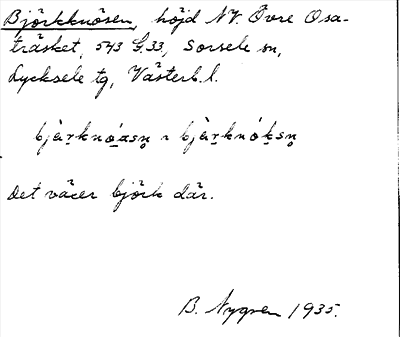 Björkknösen, höjd NV. Övre Osa-
träsket, 543 G.33, Sorsele sn,
Lycksele tg, Västerb. l.
bjàrknóasn̥ ~ bjàrknóksn̥
Det växer björk där.
B. Nygren 1935.